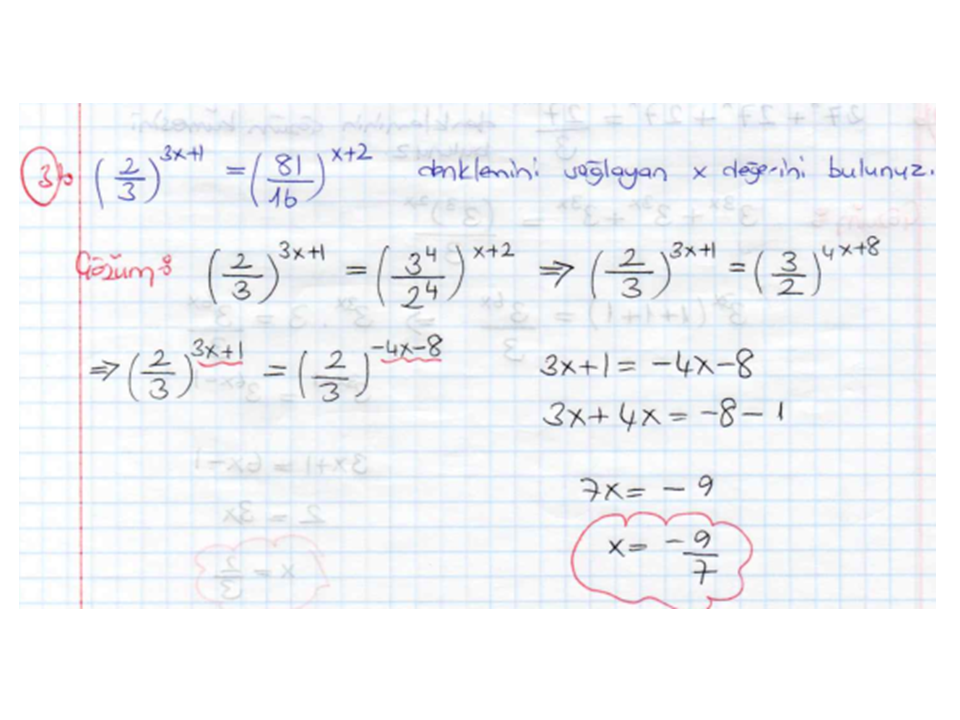 3) (2/3)^(3x+1) = (81/16)^(x+2) denklemini sağlayan x değerini bulunuz.
Çözüm: (2/3)^(3x+1) = (3^4/2^4)^(x+2) ⇒ (2/3)^(3x+1) = (3/2)^(4x+8)
⇒ (2/3)^(3x+1) = (2/3)^(-4x-8) 3x+1 = -4x-8
3x+4x = -8-1
7x = -9
x = -9/7